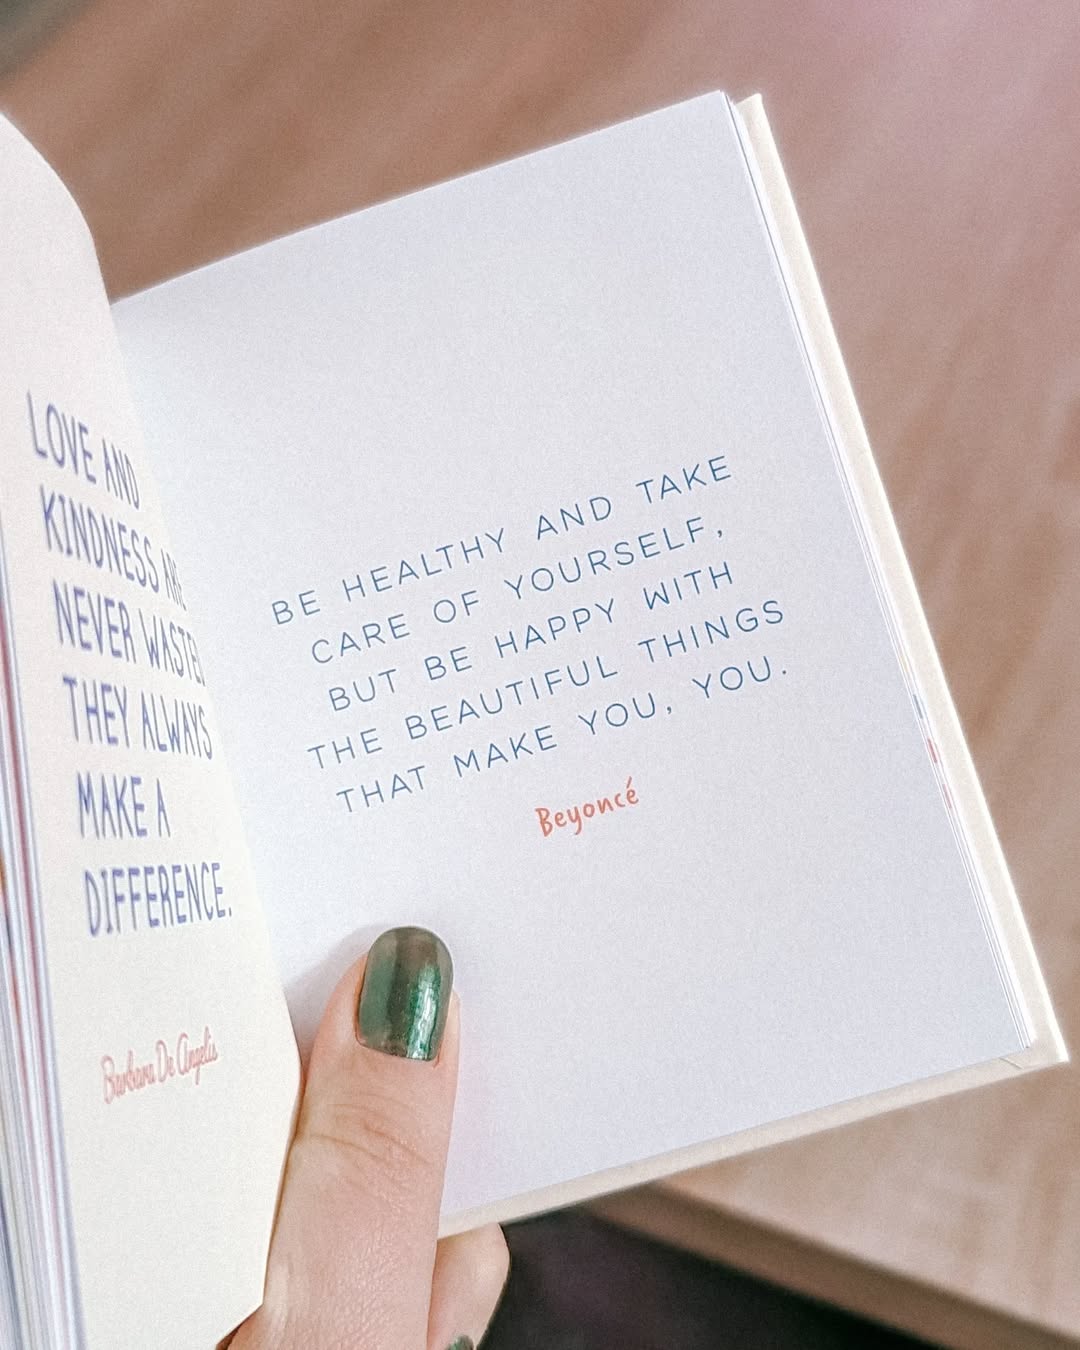 LOVE AND
KINDNESS ARE
NEVER WASTED
THEY ALWAYS
MAKE A
DIFFERENCE.
Barbara De Angelis
BE HEALTHY AND TAKE
CARE OF YOURSELF,
BUT BE HAPPY WITH
THE BEAUTIFUL THINGS
THAT MAKE YOU, YOU.
Beyoncé